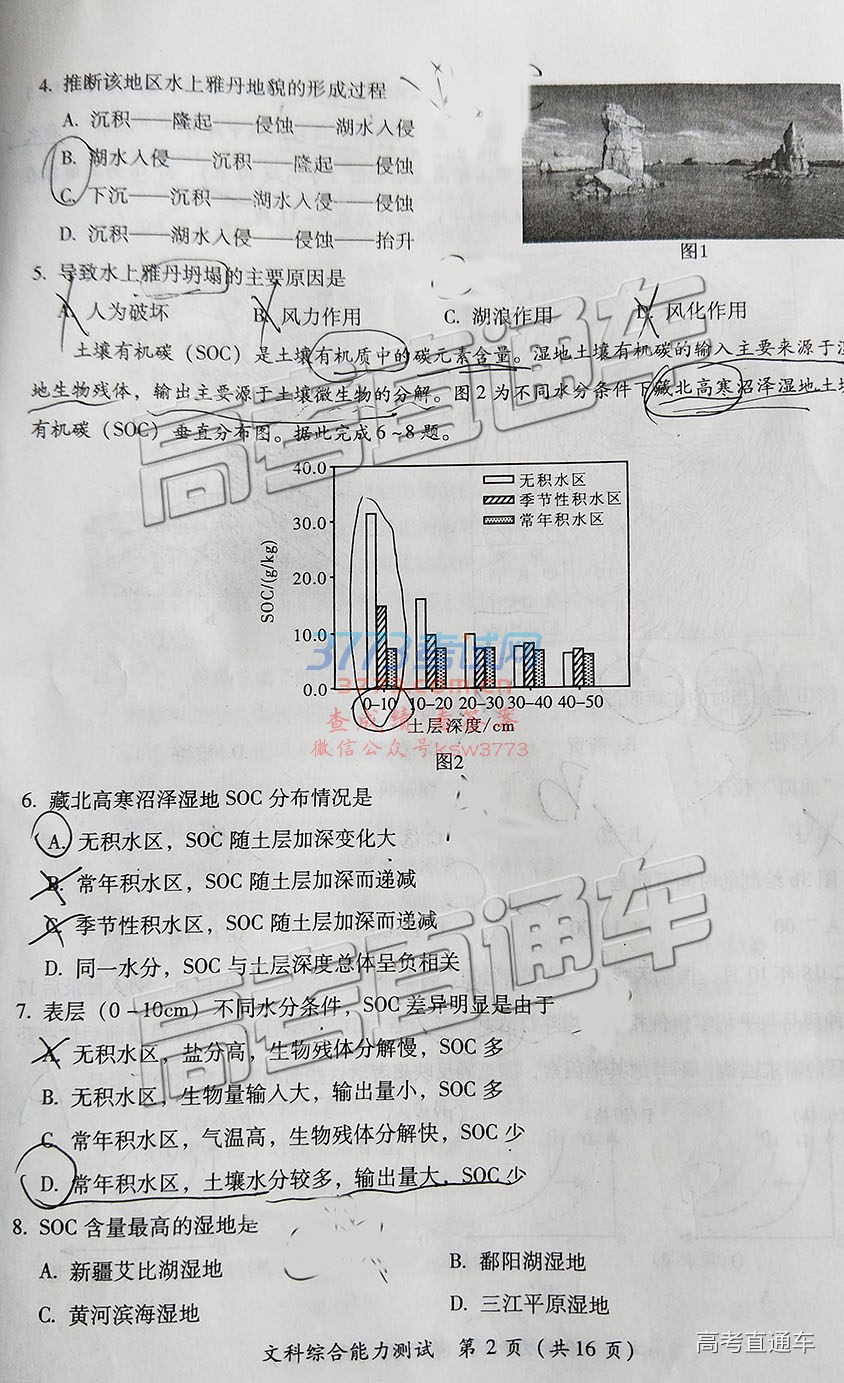 4. 推断该地区水上雅丹地貌的形成过程
A. 沉积——隆起——侵蚀——湖水入侵
B. 湖水入侵——沉积——隆起——侵蚀
C. 下沉——沉积——湖水入侵——侵蚀
D. 沉积——湖水入侵——侵蚀——抬升
图1
5. 导致水上雅丹坍塌的主要原因是
A. 人为破坏 B. 风力作用 C. 湖浪作用 D. 风化作用
土壤有机碳（SOC）是土壤有机质中的碳元素含量。湿地土壤有机碳的输入主要来源于湿
地生物残体，输出主要源于土壤微生物的分解。图2为不同水分条件下藏北高寒沼泽湿地土壤
有机碳（SOC）垂直分布图。据此完成6~8题。
SOC/(g/kg)
40.0
30.0
20.0
10.0
0.0
无积水区
季节性积水区
常年积水区
0-10 10-20 20-30 30-40 40-50
土层深度/cm
3773考试网
3773.com.cn
微信公众号ksw3773
图2
6. 藏北高寒沼泽湿地SOC分布情况是
A. 无积水区，SOC随土层加深变化大
B. 常年积水区，SOC随土层加深而递减
C. 季节性积水区，SOC随土层加深而递减
D. 同一水分，SOC与土层深度总体呈负相关
7. 表层（0-10cm）不同水分条件，SOC差异明显是由于
A. 无积水区，盐分高，生物残体分解慢，SOC多
B. 无积水区，生物量输入大，输出量小，SOC多
C. 常年积水区，气温高，生物残体分解快，SOC少
D. 常年积水区，土壤水分较多，输出量大，SOC少
8. SOC含量最高的湿地是
A. 新疆艾比湖湿地 B. 鄱阳湖湿地
C. 黄河滨海湿地 D. 三江平原湿地
文科综合能力测试 第2页（共16页）
高考直通车
高考直通车
高考直通车